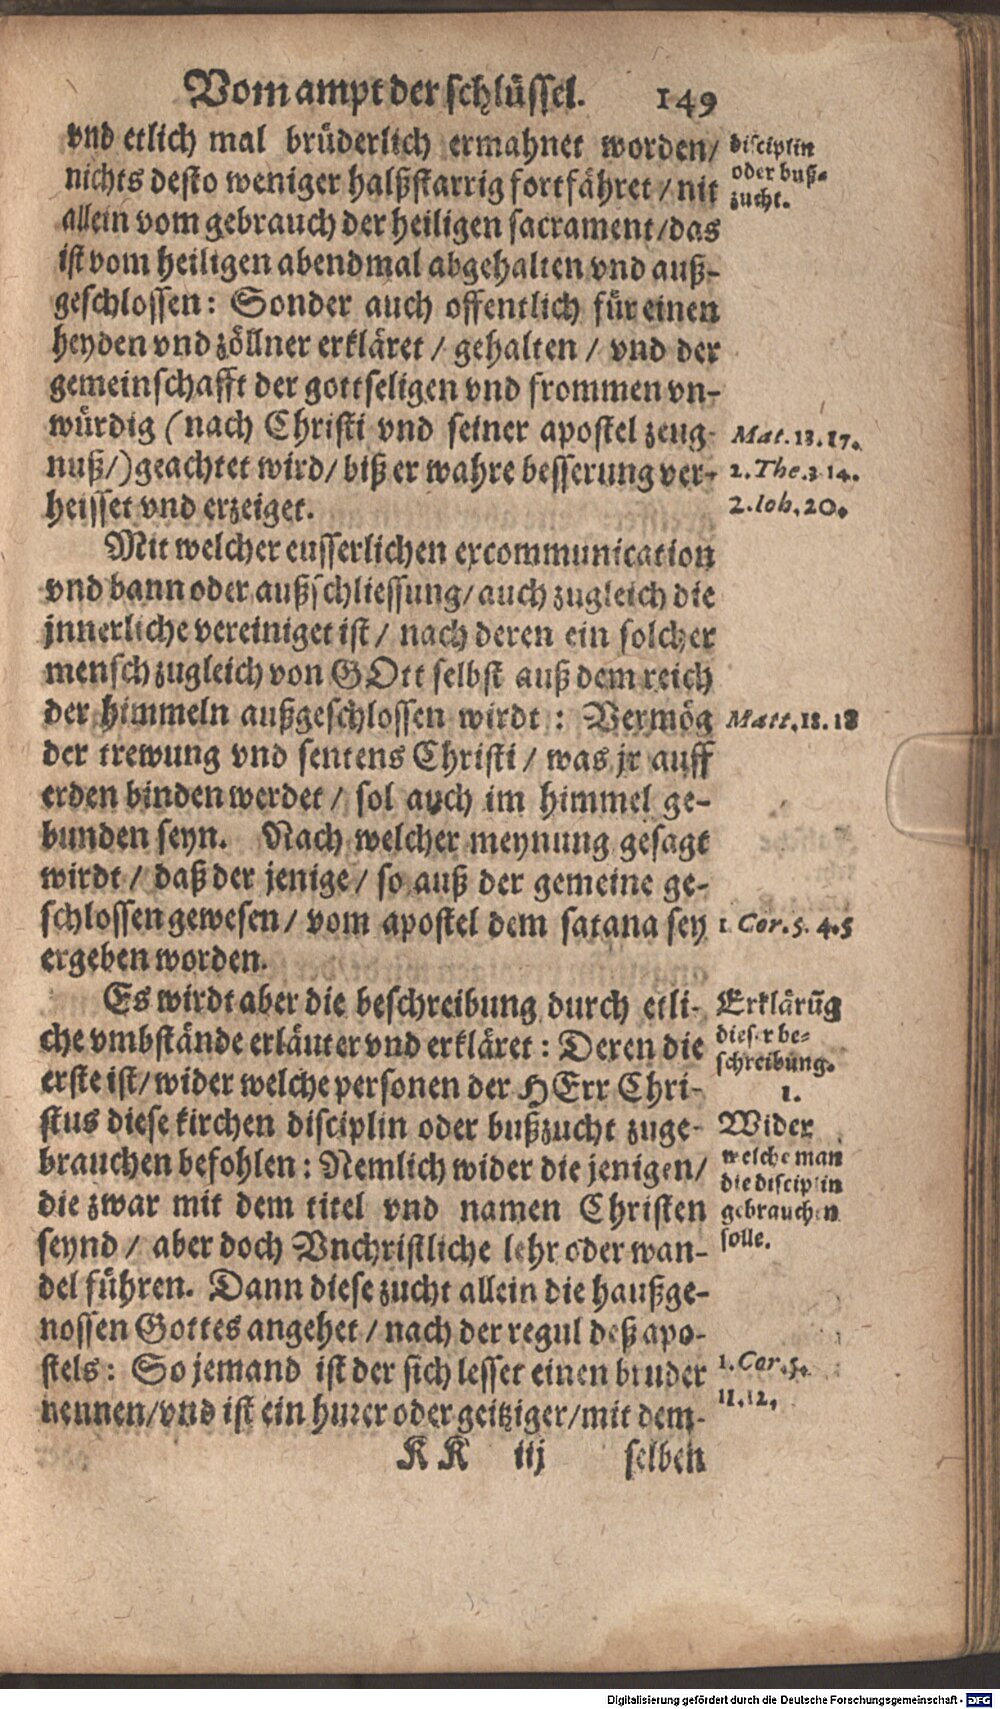 Vom ampt der schlüssel. 149
vnd etlich mal brüderlich ermahnet worden/
nichts desto weniger halßstarrig fortfähret / nit
allein vom gebrauch der heiligen sacrament/das
ist vom heiligen abendmal abgehalten vnd auß-
geschlossen: Sonder auch offentlich für einen
heyden vnd zöllner erkläret / gehalten / vnd der
gemeinschafft der gottseligen vnd frommen vn-
würdig (nach Christi vnd seiner apostel zeug-
nuß/)geachtet wird/ biß er wahre besserung ver-
heisset vnd erzeiget.
disciplin
oder buß-
zucht.
Mat.18.17.
2.The.3 14.
2.Ioh.20.
Mit welcher eusserlichen excommunication
vnd bann oder außschliessung/ auch zugleich die
jnnerliche vereiniget ist / nach deren ein solcher
mensch zugleich von GOtt selbst auß dem reich
der himmeln außgeschlossen wirdt : Vermög
der trewung vnd sentens Christi / was jr auff
erden binden werdet / sol auch im himmel ge-
bunden seyn. Nach welcher meynung gesagt
wirdt / daß der jenige / so auß der gemeine ge-
schlossen gewesen / vom apostel dem satana sey
ergeben worden.
Matt.18.18
1 Cor.5.4.5
Es wirdt aber die beschreibung durch etli-
che vmbstände erläuter vnd erkläret : Deren die
erste ist/ wider welche personen der HErr Chri-
stus diese kirchen disciplin oder bußzucht zuge-
brauchen befohlen : Nemlich wider die jenigen/
die zwar mit dem titel vnd namen Christen
seynd / aber doch Vnchristliche lehr oder wan-
del führen. Dann diese zucht allein die haußge-
nossen Gottes angehet / nach der regul deß apo-
stels: So jemand ist der sich lesset einen bruder
nennen/vnd ist ein hurer oder geitziger/mit dem-
Erklärũg
dieser be-
schreibung.
1.
Wider
welche man
die disciplin
gebrauchen
solle.
1.Cor.5.
11.12.
KK iij selben
Digitalisierung gefördert durch die Deutsche Forschungsgemeinschaft - DFG